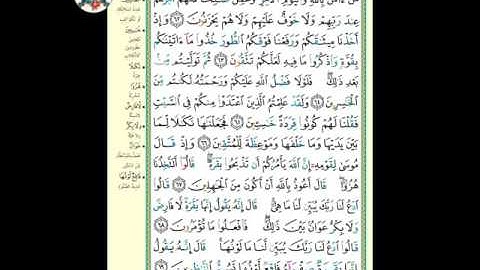 مَنْ ءَامَنَ بِٱللَّهِ وَٱلْيَوْمِ ٱلْءَاخِرِ وَعَمِلَ صَٰلِحًا فَلَهُمْ أَجْرُهُمْ
عِندَ رَبِّهِمْ وَلَا خَوْفٌ عَلَيْهِمْ وَلَا هُمْ يَحْزَنُونَ ٦٢ وَإِذْ
أَخَذْنَا مِيثَٰقَكُمْ وَرَفَعْنَا فَوْقَكُمُ ٱلطُّورَ خُذُوا۟ مَآ ءَاتَيْنَٰكُم
بِقُوَّةٍ وَٱذْكُرُوا۟ مَا فِيهِ لَعَلَّكُمْ تَتَّقُونَ ٦٣ ثُمَّ تَوَلَّيْتُم مِّنۢ
بَعْدِ ذَٰلِكَ فَلَوْلَا فَضْلُ ٱللَّهِ عَلَيْكُمْ وَرَحْمَتُهُۥ لَكُنتُم مِّنَ
ٱلْخَٰسِرِينَ ٦٤ وَلَقَدْ عَلِمْتُمُ ٱلَّذِينَ ٱعْتَدَوْا۟ مِنكُمْ فِى ٱلسَّبْتِ
فَقُلْنَا لَهُمْ كُونُوا۟ قِرَدَةً خَٰسِـِٔينَ ٦٥ فَجَعَلْنَٰهَا نَكَٰلًا لِّمَا
بَيْنَ يَدَيْهَا وَمَا خَلْفَهَا وَمَوْعِظَةً لِّلْمُتَّقِينَ ٦٦ وَإِذْ قَالَ
مُوسَىٰ لِقَوْمِهِۦٓ إِنَّ ٱللَّهَ يَأْمُرُكُمْ أَن تَذْبَحُوا۟ بَقَرَةً قَالُوٓا۟ أَتَتَّخِذُنَا
هُزُوًا قَالَ أَعُوذُ بِٱللَّهِ أَنْ أَكُونَ مِنَ ٱلْجَٰهِلِينَ ٦٧ قَالُوا۟
ٱدْعُ لَنَا رَبَّكَ يُبَيِّن لَّنَا مَا هِىَ قَالَ إِنَّهُۥ يَقُولُ إِنَّهَا بَقَرَةٌ لَّا فَارِضٌ
وَلَا بِكْرٌ عَوَانٌۢ بَيْنَ ذَٰلِكَ فَٱفْعَلُوا۟ مَا تُؤْمَرُونَ ٦٨
قَالُوا۟ ٱدْعُ لَنَا رَبَّكَ يُبَيِّن لَّنَا مَا لَوْنُهَا قَالَ إِنَّهُۥ يَقُولُ
إِنَّهَا بَقَرَةٌ صَفْرَآءُ فَاقِعٌ لَّوْنُهَا تَسُرُّ ٱلنَّٰظِرِينَ ٦٩